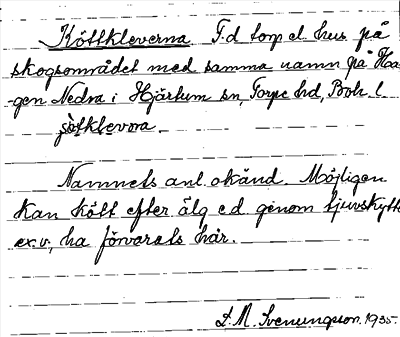 Köttkleverna. F.d torp el. hus på
skogsområdet med samma namn på Haa-
gen Nedra i Hjärtum sn, Torpe hd, Boh. l.
jötklevora.
Namnets anl. okänd. Möjligen
kan kött efter älg e.d. genom tjuvskytte
ex.v. ha förvarats här.
L. M. Svenungsson. 1935.